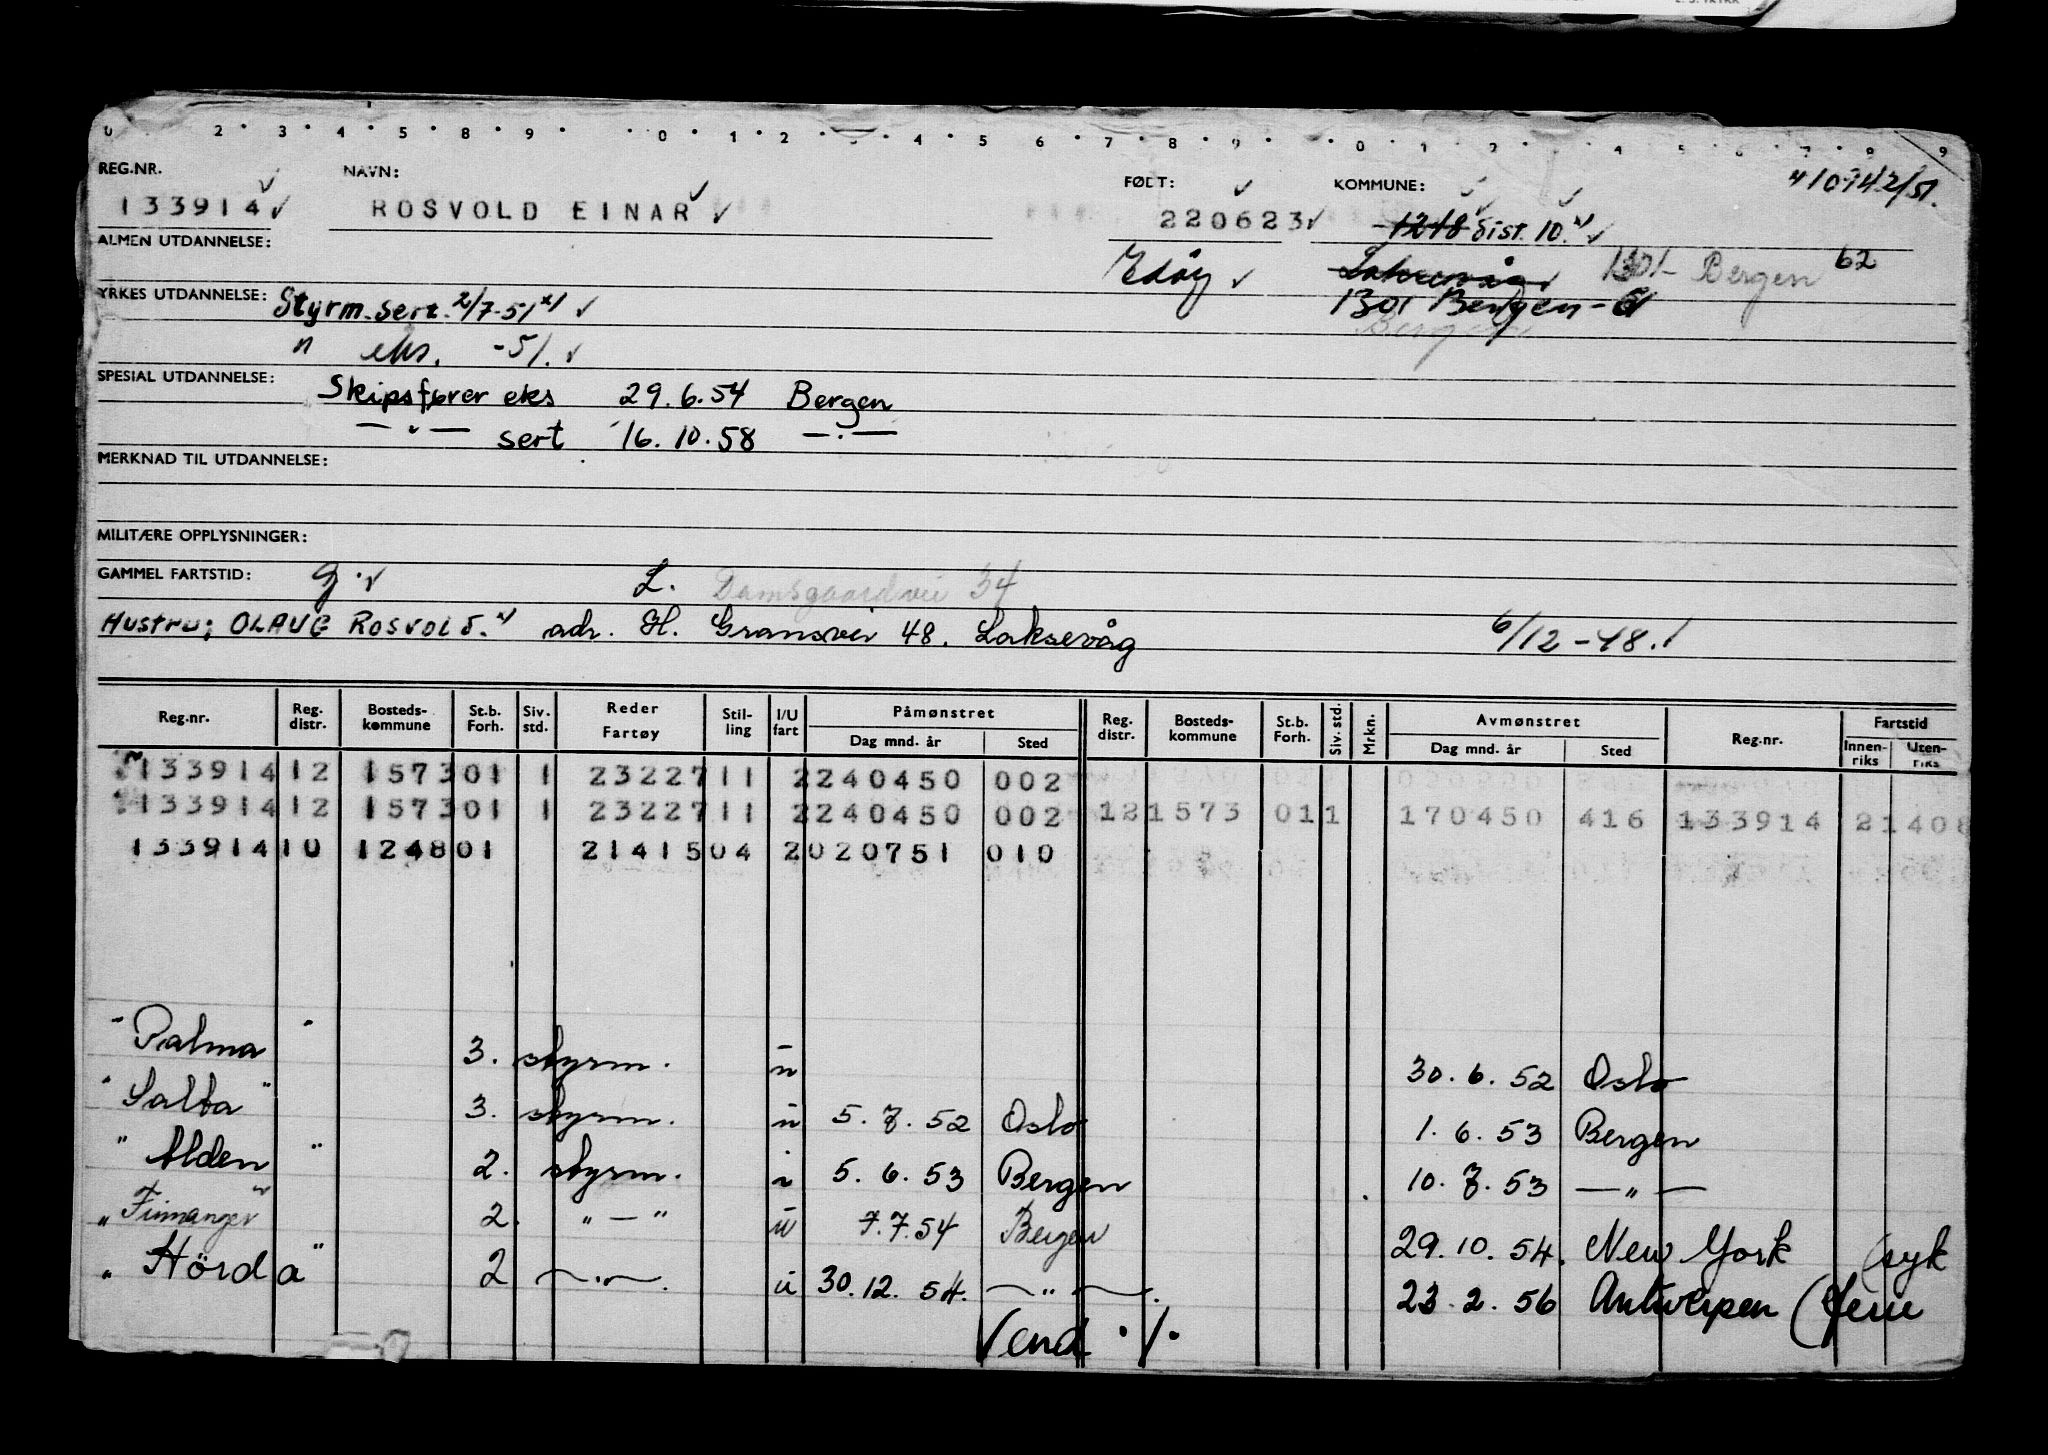 REG.NR. NAVN: FØDT: KOMMUNE: 410942/51.
133914 ROSVOLD EINAR 220623 1248 dist. 10. x)
ALMEN UTDANNELSE: Edöy Laksevåg 1301 - Bergen 62
YRKES UTDANNELSE: Styrm. sert. 2/7-51 x) 1301 Bergen - 61
" eks. -51. Bergen
SPESIAL UTDANNELSE: Skipsfører eks 29.6.54 Bergen
— " — sert 16.10.58 — " —
MERKNAD TIL UTDANNELSE:
MILITÆRE OPPLYSNINGER:
GAMMEL FARTSTID: G. L. Damsgaardvei 34
Hustru; OLAUG ROSVOLD. x) adr. H. Gransvei 48. Laksevåg 6/12-48.
Reg.nr. Reg. distr. Bosteds- kommune St.b. Forh. Siv. std. Reder Fartøy Stil- ling I/U fart Påmønstret Dag mnd. år Sted Reg. distr. Bosteds- kommune St.b. Forh. Siv. std. Mrkn. Avmønstret Dag mnd. år Sted Reg.nr. Fartstid Innen- riks Uten- riks
133914 12 1573 01 1 23227 11 2 240450 002
133914 12 1573 01 1 23227 11 2 240450 002 12 1573 01 1 170450 416 133914 21408
133914 10 1248 01 21415 04 2 020751 010
"Palma" 3. styrm. u 30.6.52 Oslo
"Salta" 3. styrm. u 5.7.52 Oslo 1.6.53 Bergen
"Alden" 2. styrm. i 5.6.53 Bergen 10.7.53 — " —
"Finnanger" 2. " — " u 7.7.54 Bergen 29.10.54. New York (syk
"Hörda" 2 — " — u 30.12.54. — " — 23.2.56 Antwerpen (ferie
Vend ./.